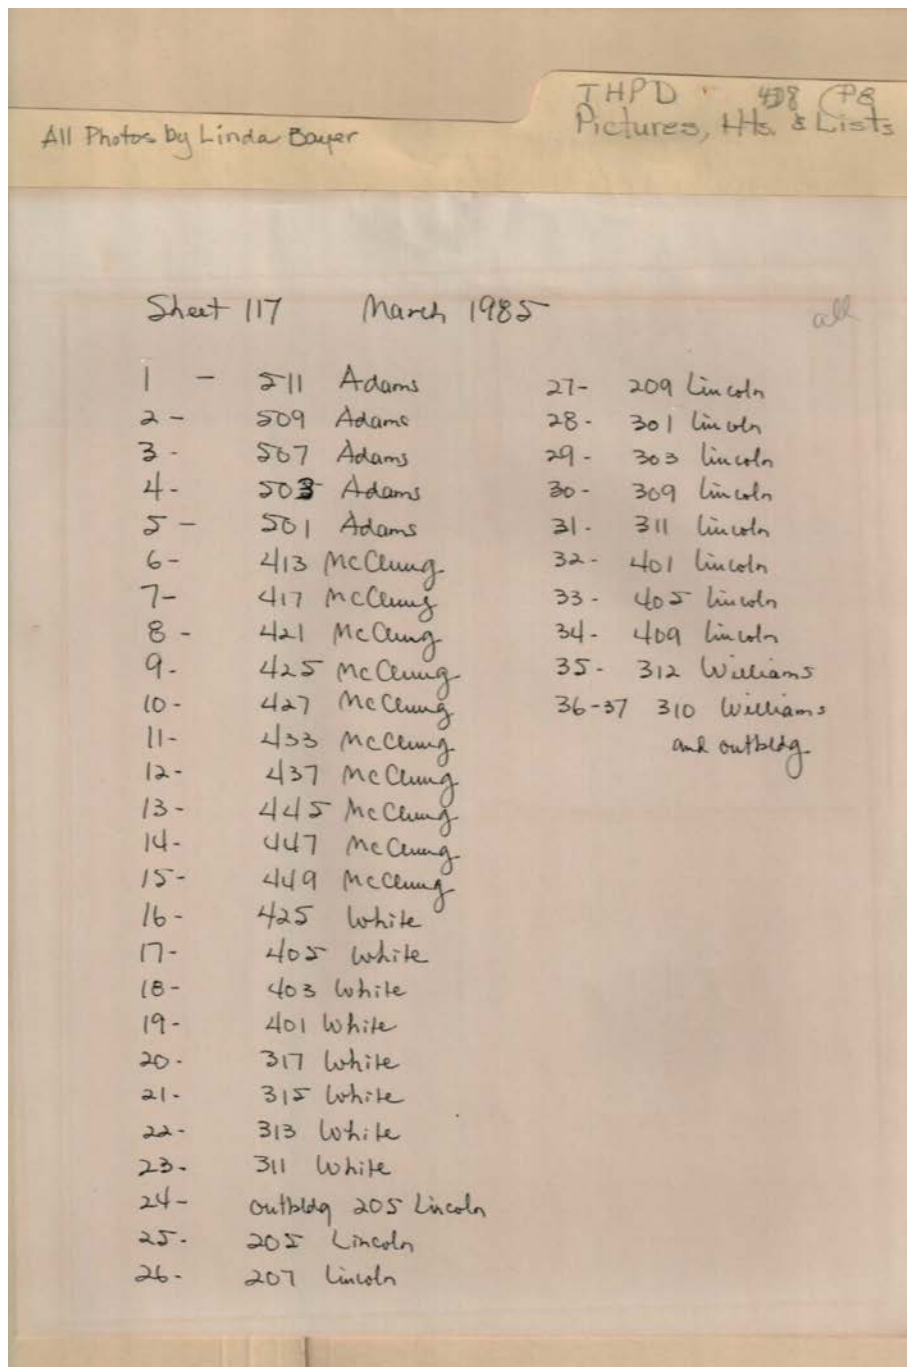 THPD
Pictures, Hts. & Lists
All Photos by Linda Bayer
Sheet 117 March 1985
all
1 - 511 Adams
2 - 509 Adams
3 - 507 Adams
4 - 503 Adams
5 - 501 Adams
6 - 413 McClung
7 - 417 McClung
8 - 421 McClung
9 - 425 McClung
10 - 427 McClung
11 - 433 McClung
12 - 437 McClung
13 - 445 McClung
14 - 447 McClung
15 - 449 McClung
16 - 425 White
17 - 405 White
18 - 403 White
19 - 401 White
20 - 317 White
21 - 315 White
22 - 313 White
23 - 311 White
24 - outbldg 205 Lincoln
25 - 205 Lincoln
26 - 207 Lincoln
27 - 209 Lincoln
28 - 301 Lincoln
29 - 303 Lincoln
30 - 309 Lincoln
31 - 311 Lincoln
32 - 401 Lincoln
33 - 405 Lincoln
34 - 409 Lincoln
35 - 312 Williams
36-37 310 Williams
and outbldg.